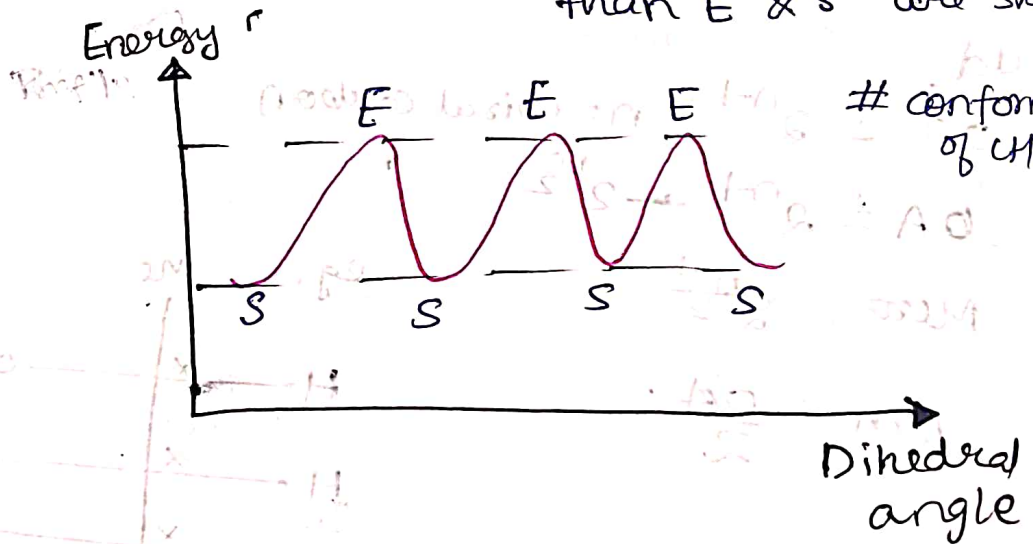 than E & S
Energy
E E E
# confor
of CH
S S S S
Dihedral
angle